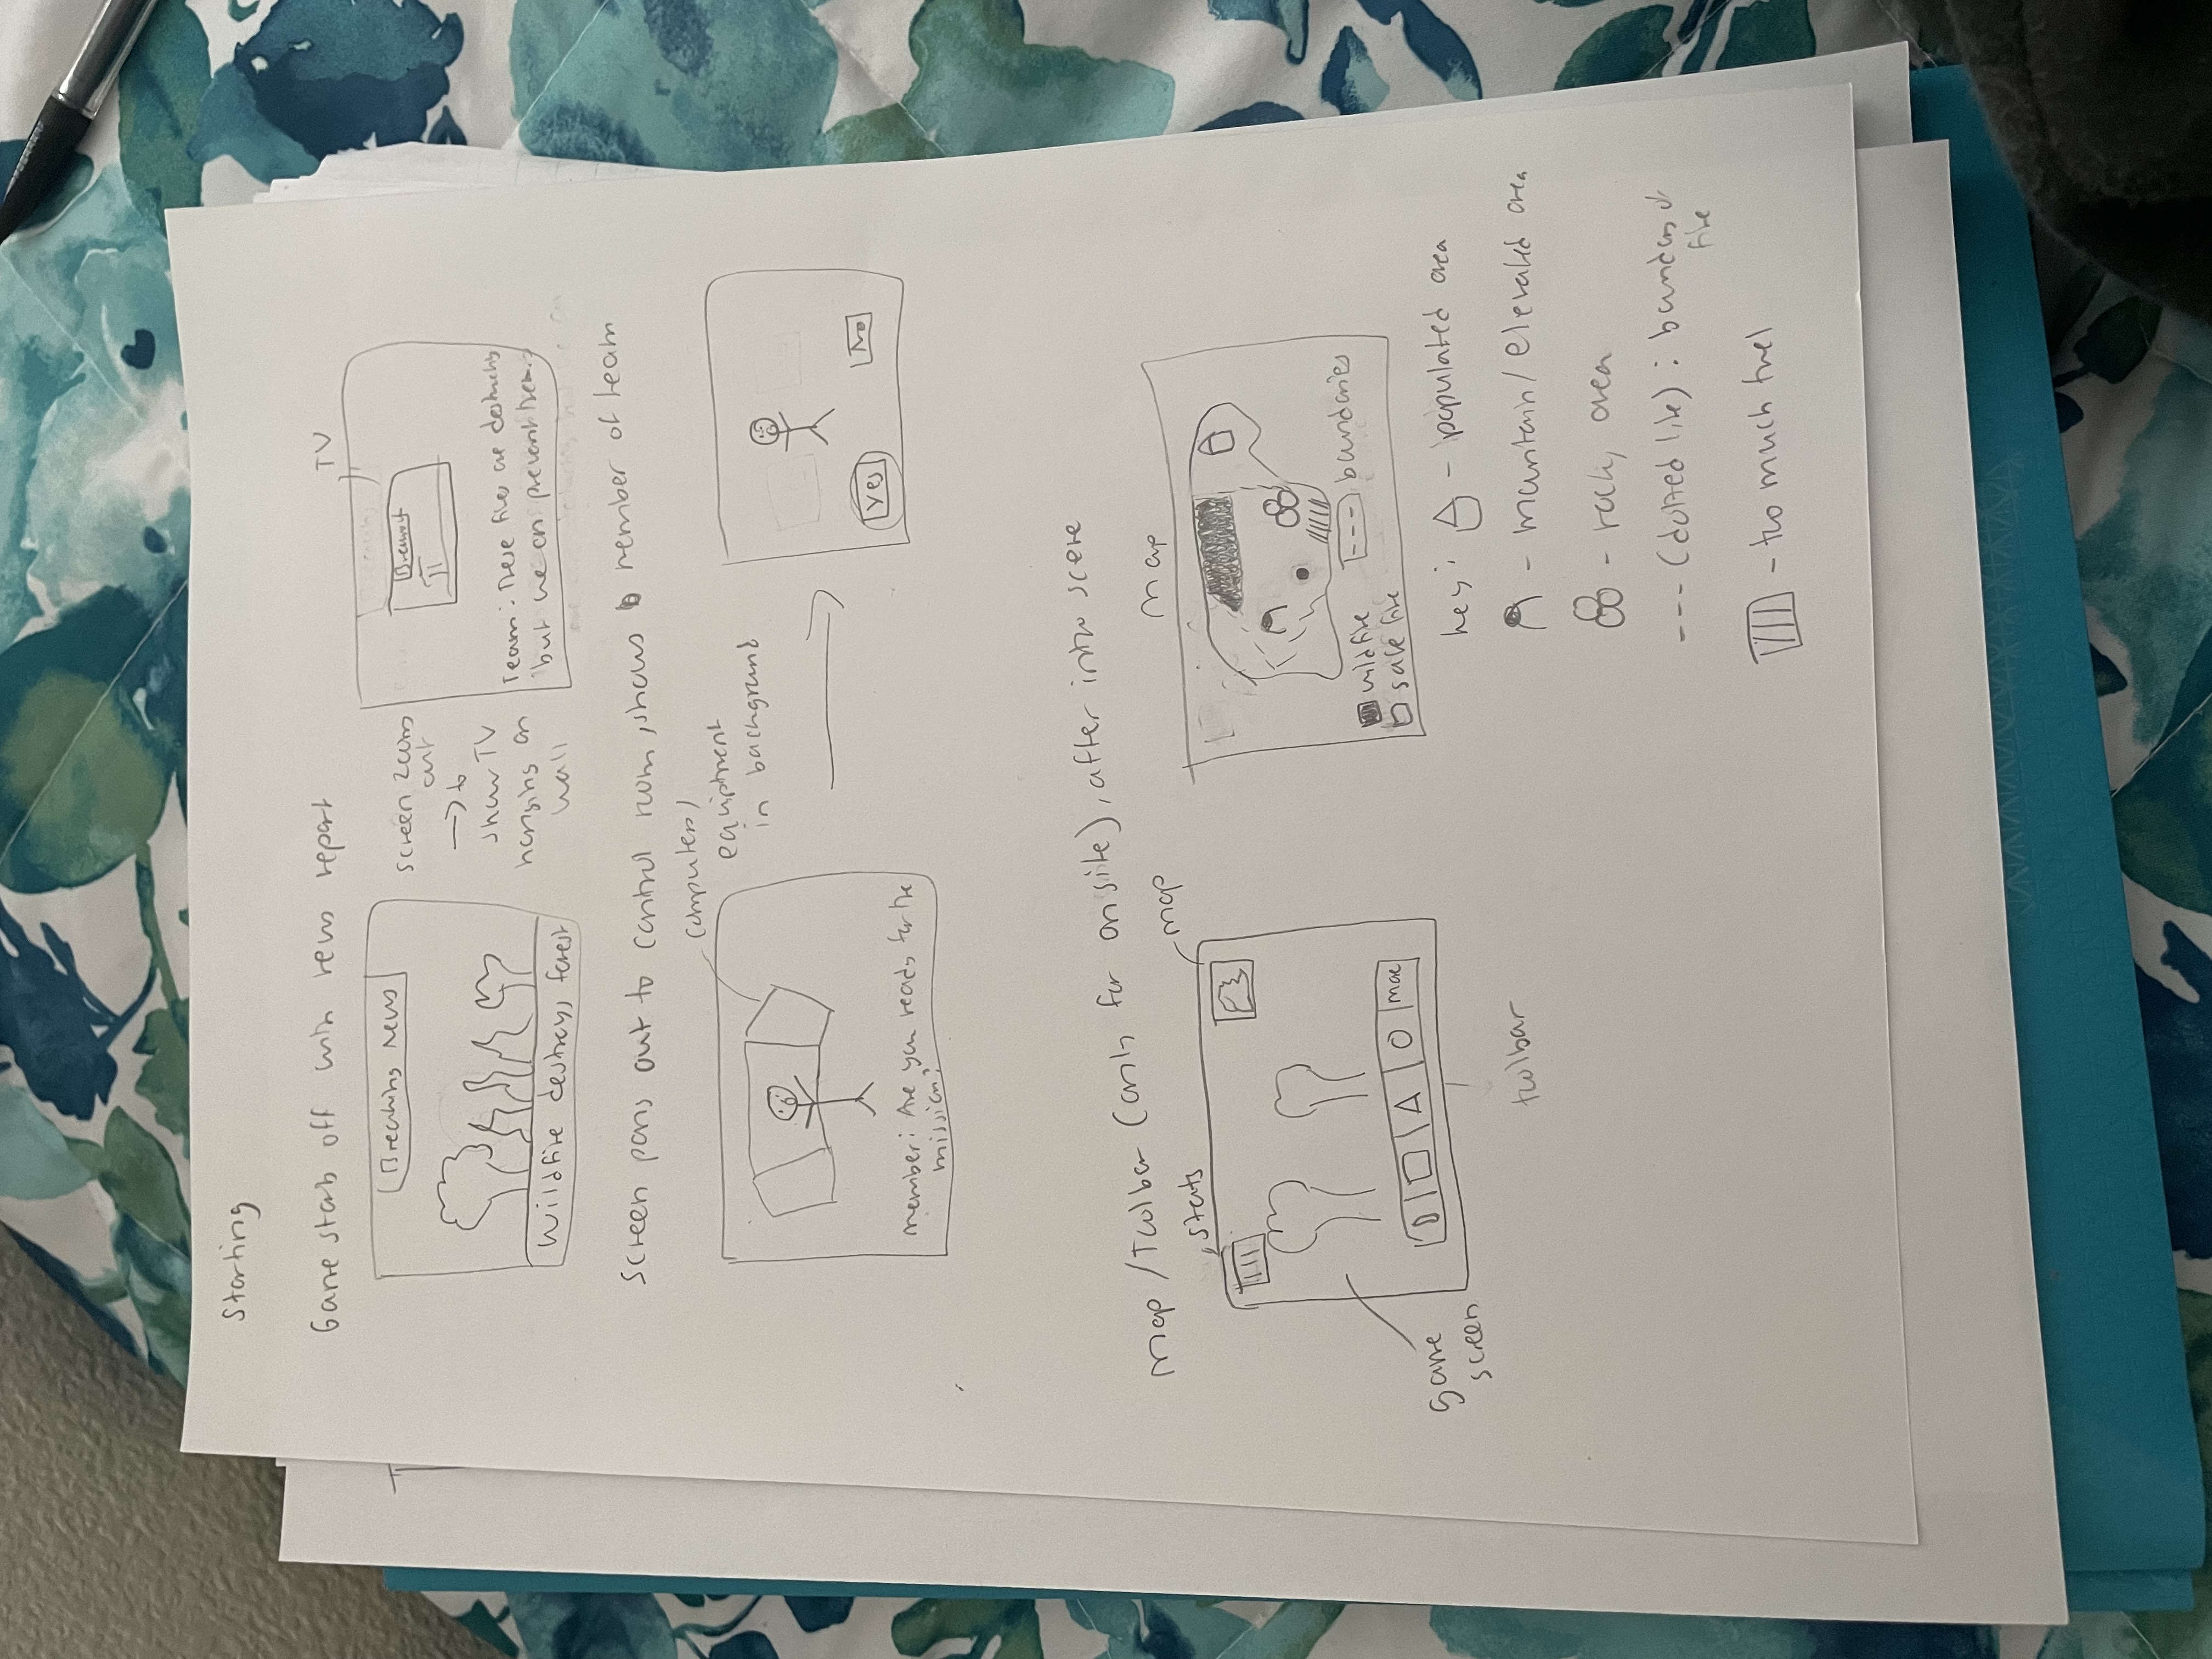 Starting
Game starts off with news report
TV
Breaking News
Wildfire destroys forest
screen zooms
out
→ to
show TV
hanging on
wall
Team: These fires are destructing
but we can prevent them.
screen pans out to control room, shows member of team
computers,
equipment
in background
member: Are you ready for the
mission?
Yes
No
Map / Toolbar (only for onsite), after intro scene
stats
map
game
screen
more
toolbar
Map
wildfire
safe fire
boundaries
key: - populated area
- mountain/elevated area
- rocky area
--- (dotted line) : boundary of
fire
- too much fuel